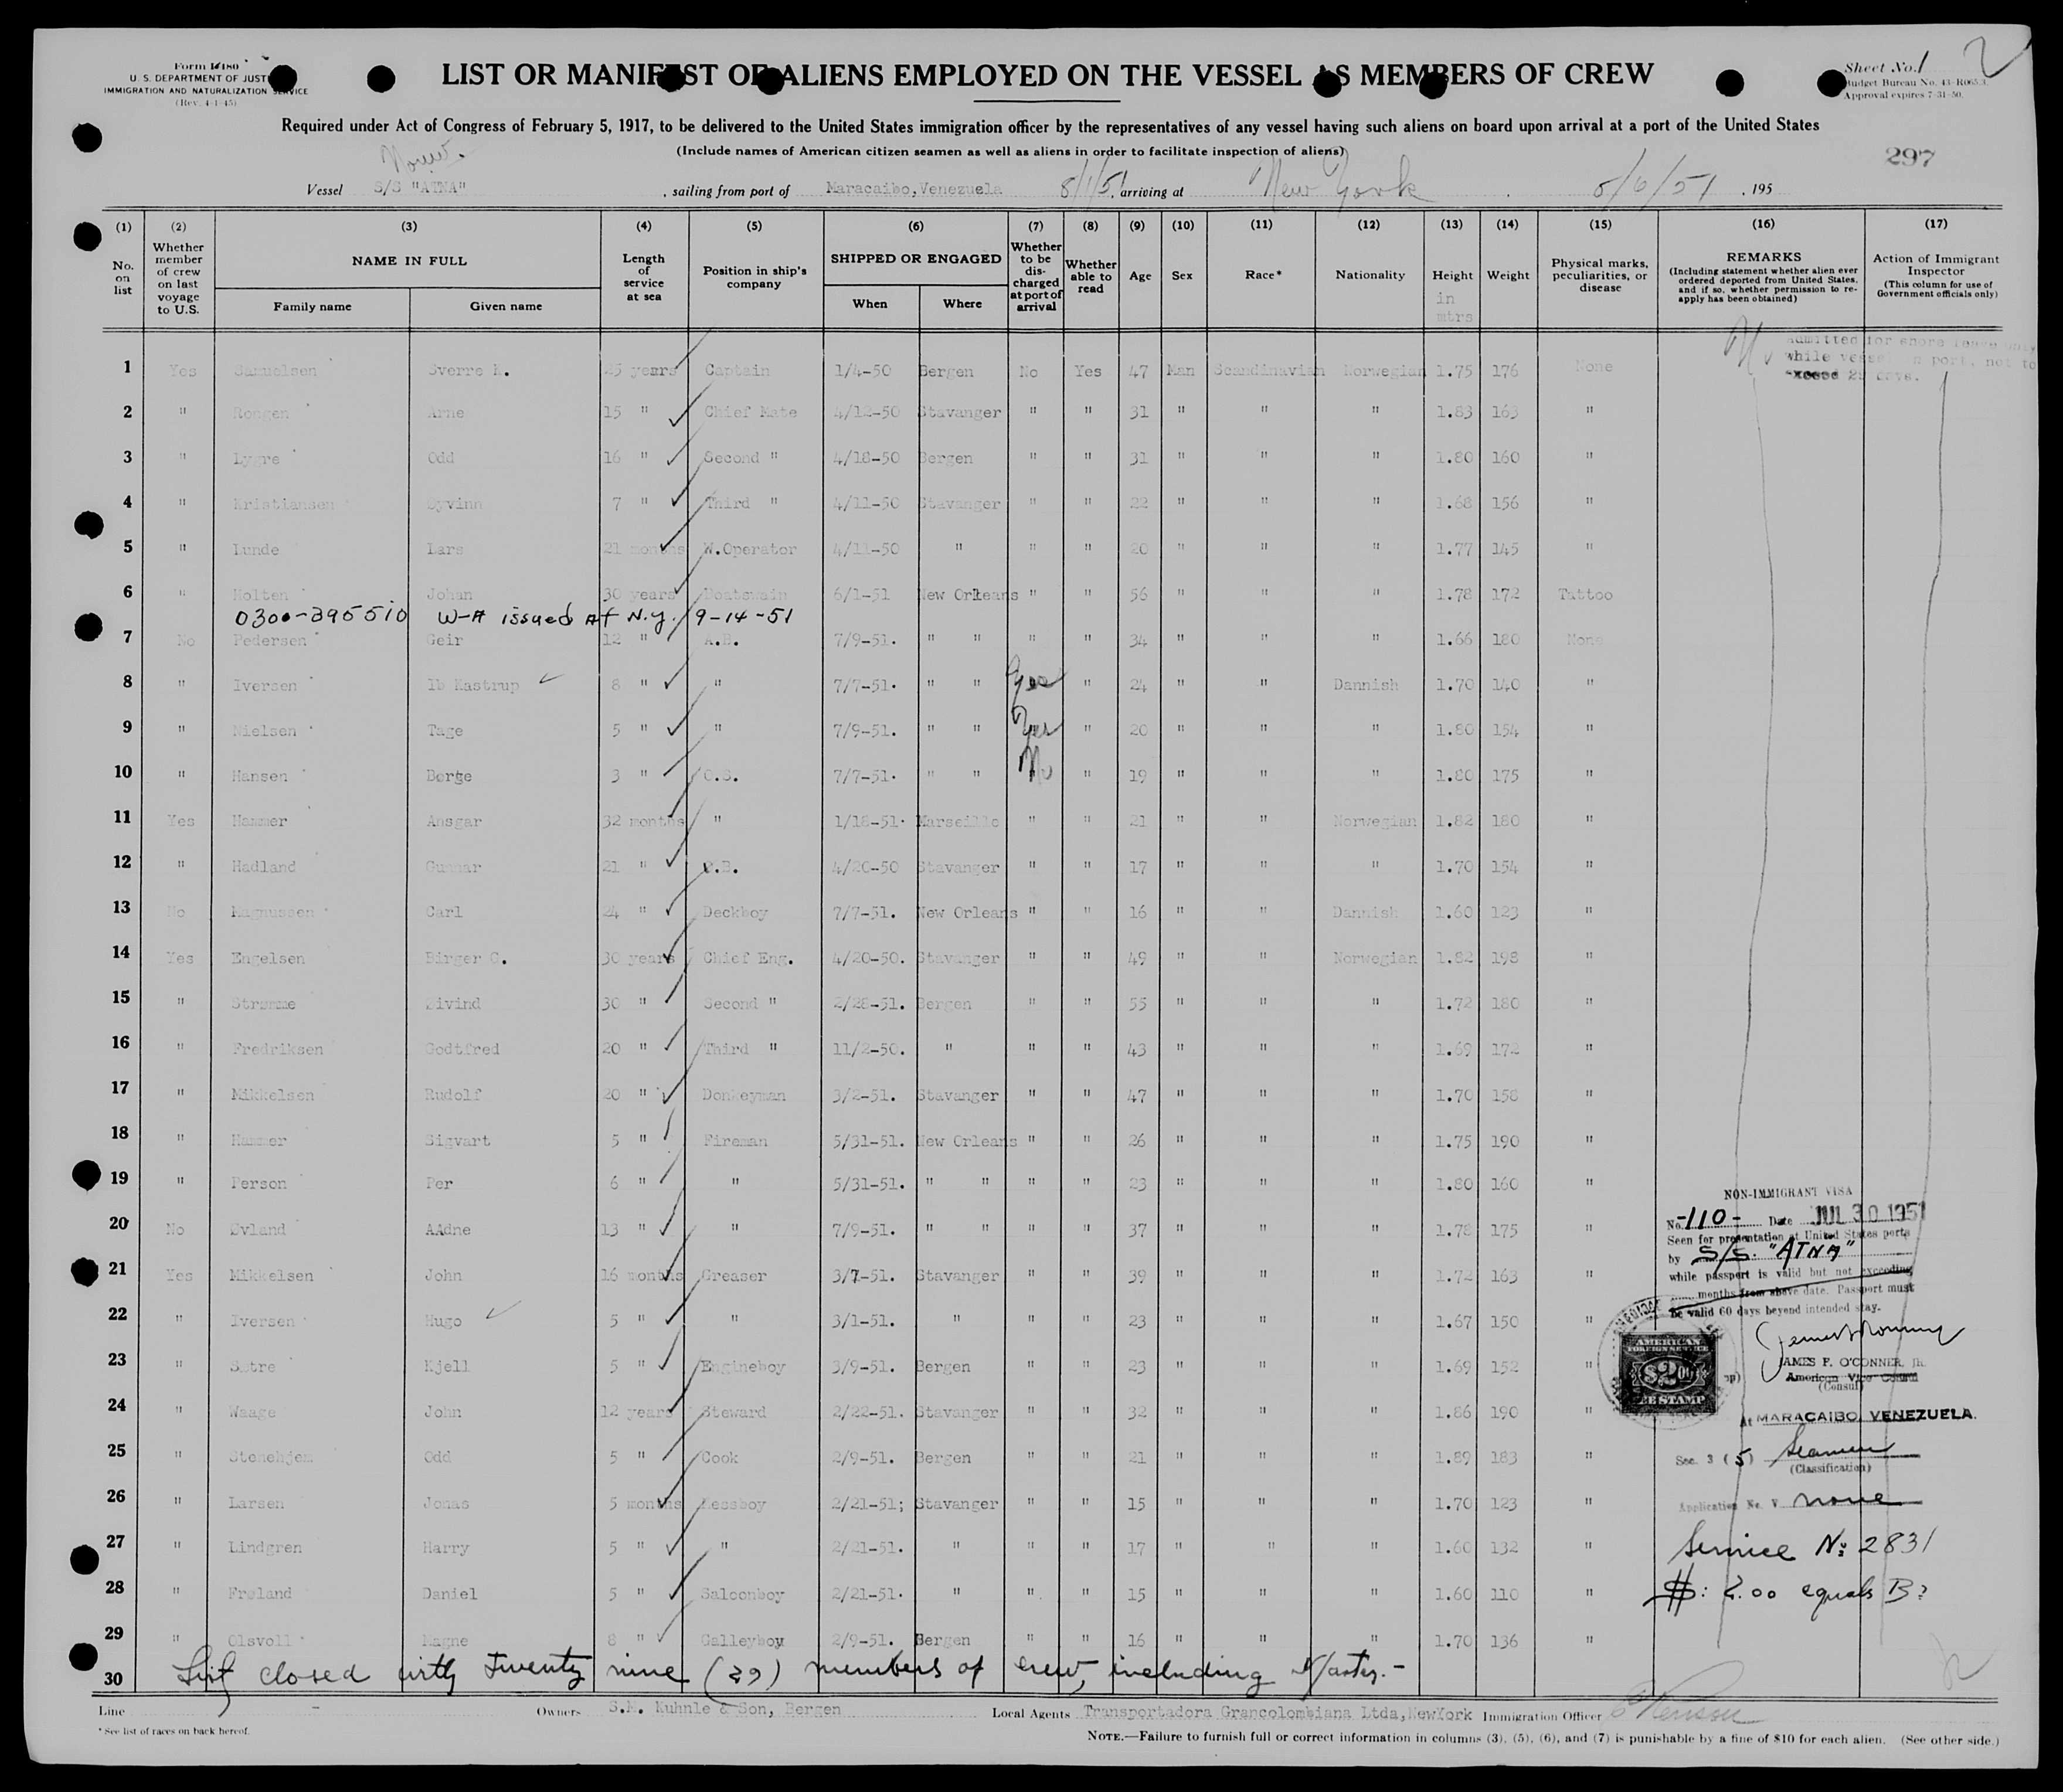 Form I-480
U. S. DEPARTMENT OF JUST
IMMIGRATION AND NATURALIZATION SERVICE
(Rev. 4-1-45)
LIST OR MANIFEST OF ALIENS EMPLOYED ON THE VESSEL AS MEMBERS OF CREW
Sheet No. 1
2
Budget Bureau No. 43-R065.3.
Approval expires 7-31-50.
Required under Act of Congress of February 5, 1917, to be delivered to the United States immigration officer by the representatives of any vessel having such aliens on board upon arrival at a port of the United States
(Include names of American citizen seamen as well as aliens in order to facilitate inspection of aliens)
297
Norw.
Vessel S/S "ATNA" , sailing from port of Maracaibo, Venezuela 8/1/51, arriving at New York 8/6/51 , 195
(1) (2) (3) (4) (5) (6) (7) (8) (9) (10) (11) (12) (13) (14) (15) (16) (17)
No. on list
Whether member of crew on last voyage to U.S.
NAME IN FULL
Family name Given name
Length of service at sea
Position in ship's company
SHIPPED OR ENGAGED
When Where
Whether to be discharged at port of arrival
Whether able to read
Age
Sex
Race*
Nationality
Height in mtrs
Weight
Physical marks, peculiarities, or disease
REMARKS
(Including statement whether alien ever ordered deported from United States, and if so, whether permission to reapply has been obtained)
Action of Immigrant Inspector
(This column for use of Government officials only)
admitted for shore leave only
while vessel in port, not to
exceed 29 days.
1 Yes Samuelsen Sverre M. 25 years Captain 1/4-50 Bergen No Yes 47 Man Scandinavian Norwegian 1.75 176 None
2 " Rongen Arne 15 " Chief Mate 4/12-50 Stavanger " " 31 " " " 1.83 163 "
3 " Lygre Odd 16 " Second " 4/18-50 Bergen " " 31 " " " 1.80 160 "
4 " Kristiansen Øyvinn 7 " Third " 4/11-50 Stavanger " " 22 " " " 1.68 156 "
5 " Lunde Lars 21 months W.Operator 4/11-50 " " " 20 " " " 1.77 145 "
6 " Holten Johan 30 years Boatswain 6/1-51 New Orleans " " 56 " " " 1.78 172 Tattoo
0300-395510 W-A issued At N.Y. 9-14-51
7 No Pedersen Geir 12 " A.B. 7/9-51. " " " " 34 " " " 1.66 180 None
8 " Iversen Ib Kastrup 8 " " 7/7-51. " " Yes " 24 " " Dannish 1.70 140 "
9 " Nielsen Tage 5 " " 7/9-51. " " Yes " 20 " " " 1.80 154 "
10 " Hansen Børge 3 " O.S. 7/7-51. " " No " 19 " " " 1.80 175 "
11 Yes Hammer Ansgar 32 months " 1/18-51. Marseille " " 21 " " Norwegian 1.82 180 "
12 " Hadland Gunnar 21 " 4/20-50 Stavanger " " 17 " " " 1.70 154 "
13 No Magnussen Carl 24 " Deckboy 7/7-51. New Orleans " " 16 " " Dannish 1.60 123 "
14 Yes Engelsen Birger C. 30 years Chief Eng. 4/20-50. Stavanger " " 49 " " Norwegian 1.82 198 "
15 " Strømme Eivind 30 " Second " 2/28-51. Bergen " " 55 " " " 1.72 180 "
16 " Fredriksen Godtfred 20 " Third " 11/2-50. " " " 43 " " " 1.69 172 "
17 " Mikkelsen Rudolf 20 " Donkeyman 3/2-51. Stavanger " " 47 " " " 1.70 158 "
18 " Hammer Sigvart 5 " Fireman 5/31-51. New Orleans " " 26 " " " 1.75 190 "
19 " Person Per 6 " " 5/31-51. " " " " 23 " " " 1.80 160 "
20 No Øvland AAdne 13 " " 7/9-51. " " " " 37 " " " 1.78 175 "
21 Yes Mikkelsen John 16 months Greaser 3/7-51. Stavanger " " 39 " " " 1.72 163 "
22 " Iversen Hugo 5 " " 3/1-51. " " " 23 " " " 1.67 150 "
23 " Sætre Kjell 5 " Engineboy 3/9-51. Bergen " " 23 " " " 1.69 152 "
24 " Waage John 12 years Steward 2/22-51. Stavanger " " 32 " " " 1.86 190 "
25 " Stenehjem Odd 5 " Cook 2/9-51. Bergen " " 21 " " " 1.89 183 "
26 " Larsen Jonas 5 months Messboy 2/21-51; Stavanger " " 15 " " " 1.70 123 "
27 " Lindgren Harry 5 " " 2/21-51. " " " 17 " " " 1.60 132 "
28 " Frøland Daniel 5 " Saloonboy 2/21-51. " " " 15 " " " 1.60 110 "
29 " Olsvoll Magne 8 " Galleyboy 2/9-51. Bergen " " 16 " " " 1.70 136 "
30 List closed with twenty nine (29) members of crew, including Master.-
NON-IMMIGRANT VISA
No. -110- Date JUL 30 1951
Seen for presentation at United States ports
by S/S. "ATNA"
while passport is valid but not exceeding
months from above date. Passport must
be valid 60 days beyond intended stay.
AMERICAN
FOREIGN SERVICE
$2.00
FEE STAMP
JAMES F. O'CONNER, JR.
American Vice Consul
(Consul)
At MARACAIBO, VENEZUELA.
Sec. 3 (5) Seamen
(Classification)
Application No. V none
Service No 2831
$: 2.00 equals B?
Line - Owners S.M. Kuhnle & Son, Bergen Local Agents Transportadora Grancolombiana Ltda, NewYork Immigration Officer
* See list of races on back hereof.
NOTE.—Failure to furnish full or correct information in columns (3), (5), (6), and (7) is punishable by a fine of $10 for each alien. (See other side.)